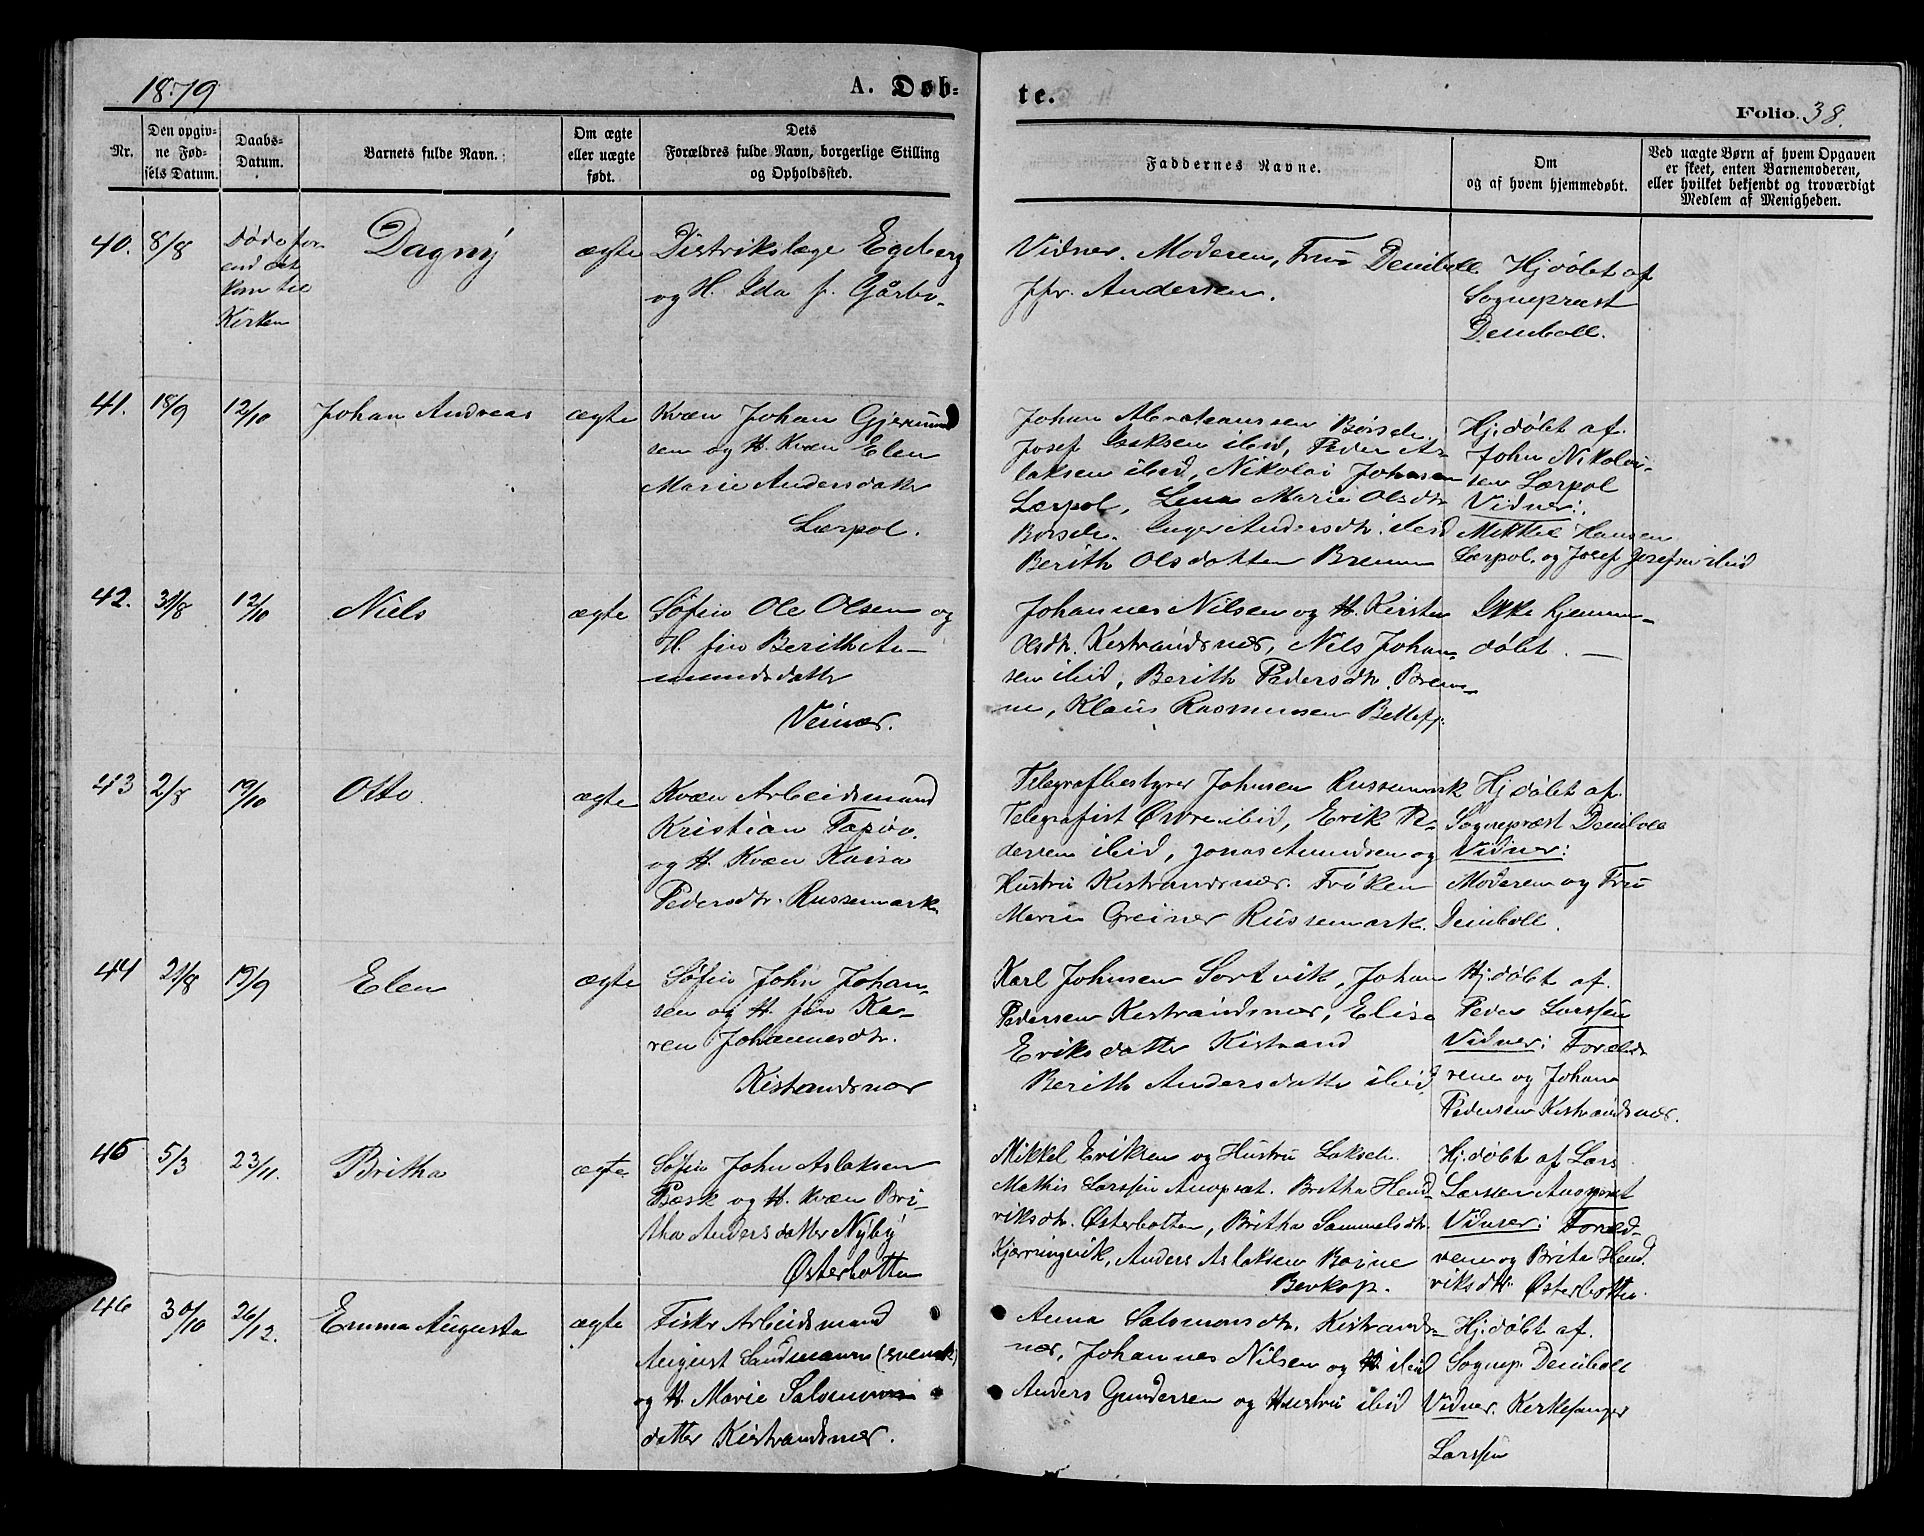 1879
A. Døb-
te.
Folio. 38.
Nr.
Den opgiv-
ne Fød-
sels Datum.
Daabs-
Datum.
Barnets fulde Navn.
Om ægte
eller uægte
født.
Dets
Forældres fulde Navn, borgerlige Stilling
og Opholdssted.
Faddernes Navne.
Om
og af hvem hjemmedøbt.
Ved uægte Børn af hvem Opgaven
er skeet, enten Barnemoderen,
eller hvilket bekjendt og troværdigt
Medlem af Menigheden.
40.
8/8
Døde før
end det
kom til
Kirken
Dagny
ægte
Distriktslæge Egeberg
og H. Ida f. Gårbo-
Vidner. Moderen, Fru Deinboll
Jfr. Andersen.
Hjdøbt af
Sognepræst
Deinboll.
41.
18/9
12/10
Johan Andreas
ægte
Kvæn Johan Gjermund
sen og H. Kvæn Elen
Marie Andersdatter
Lærpol.
Johan Abrahamssen Børsele.
Josef Isaksen ibid, Peder As-
laksen ibid, Nikolai Johnsen
Lærpol, Lena Marie Olsdtr
Børsele. Inger Andersdtr. ibid
Berith Olsdatter Brenna
Hjdøbt af.
John Nikolai-
sen Lærpol
Vidner:
Mikkel Hansen
Lærpol. og Josef Josefsen ibid
42.
31/8
12/10
Niels
ægte
Søfin Ole Olsen og
H. fin Berith A-
mundsdatter
Veinær.
Johannes Nilsen og H. Kirsten
Olsdtr. Kistrandsnær, Nils Johan-
sen ibid, Berith Pedersdtr. Bren-
na, Klaus Rasmussen Billefj.
Ikke hjemme-
døbt. —
43
2/8
19/10
Otto
ægte
Kvæn Arbeidsmand
Kristian Tapio.
og H. Kvæn Kaisa
Pedersdtr. Russemark
Telegrafbestyrer Johnsen Russemark
Telegrafist Øvre ibid, Erik Pe-
dersen ibid, Jonas Amundsen og
Hustru Kistrandsnær. Frøken
Marie Greiner Russemark.
Hjdøbt af.
Sognepræst Deinboll
Vidner:
Moderen og Fru
Deinboll.
44
21/8
19/9
Elen
ægte
Søfin John Johan-
sen og H. fin Ka-
ren Johannesdtr.
Kistrandsnær
Karl Johnsen Sortvik, Johan
Pedersen Kistrandsnær, Elise
Eriksdatter Kistrand
Berith Andersdatter ibid.
Hjdøbt af.
Peder Larssen
Vidner: Foræld-
rene og Johan
Pedersen Kistrandsnær.
45
5/3
23/11.
Britha
ægte
Søfin John Aslaksen
Bæsk og H. kvæn Bri-
tha Andersdatter Nyby
Østerbotten
Mikkel Eriksen og Hustru Lakselv.
Mathis Larssen Avopræt. Britha Hend-
riksdtr. Østerbotten, Britha Sammelsdtr.
Kjærringvik, Anders Aslaksen Baine
Bevkop.
Hjdøbt af Lars
Larssen Avopræt
Vidner: Foræld-
rene og Brita Hend-
riksdtr. Østerbotten.
46
30/10
26/12.
Emma Augusta
ægte
Fisker Arbeidsmand
August Sandmann (svensk)
og H. Marie Salomons
datter Kistrandsnær.
Anna Salomonsdtr. Kistrands-
nær, Johannes Nilsen og H. ibid
Anders Gundersen og Hustru ibid
Hjdøbt af.
Sognep. Deinboll
Vidner. Kirkesanger
Larssen